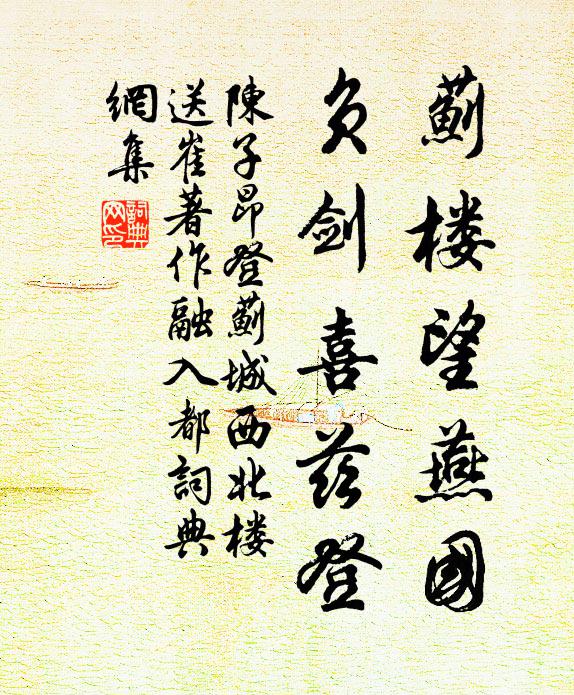 蓟楼望燕國
负剑喜兹登
陳子昂登蓟城西北楼
送崔著作融入都詞典
網集
詞典
网印